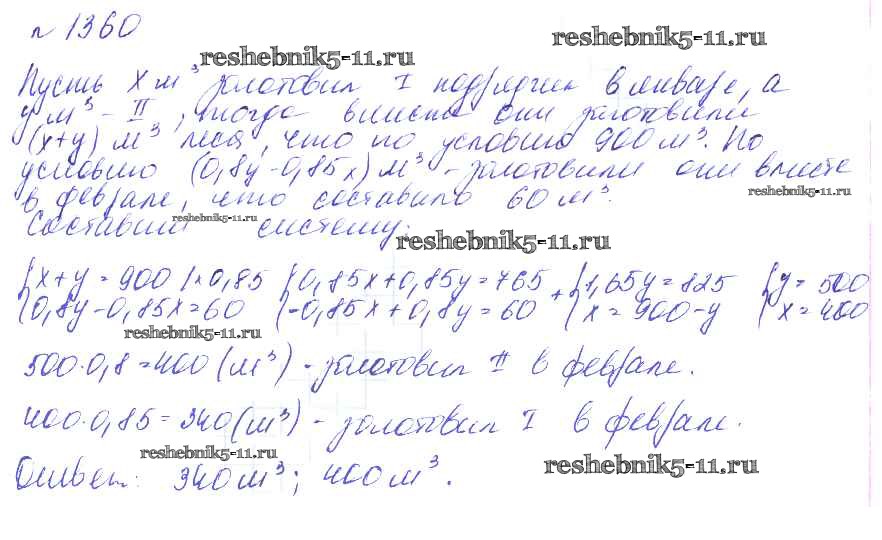 № 1360
reshebnik5-11.ru
reshebnik5-11.ru
Пусть x м³ заготовил I подрядчик в январе, а
y м³ – II, тогда вместе они заготовили
(x+y) м³ леса, что по условию 900 м³. По
условию (0,8y-0,85x) м³ - заготовили они вместе
reshebnik5-11.ru
в феврале, что составило 60 м³.
reshebnik5-11.ru
Составим систему:
reshebnik5-11.ru
{x+y=900 |×0,85 {0,85x+0,85y=765 {1,65y=825 {y=500
{0,8y-0,85x=60 {-0,85x+0,8y=60 + {x=900-y {x=400
reshebnik5-11.ru
500·0,8=400 (м³) - заготовил II в феврале.
400·0,85=340 (м³) - заготовил I в феврале.
reshebnik5-11.ru
reshebnik5-11.ru
Ответ: 340 м³; 400 м³.